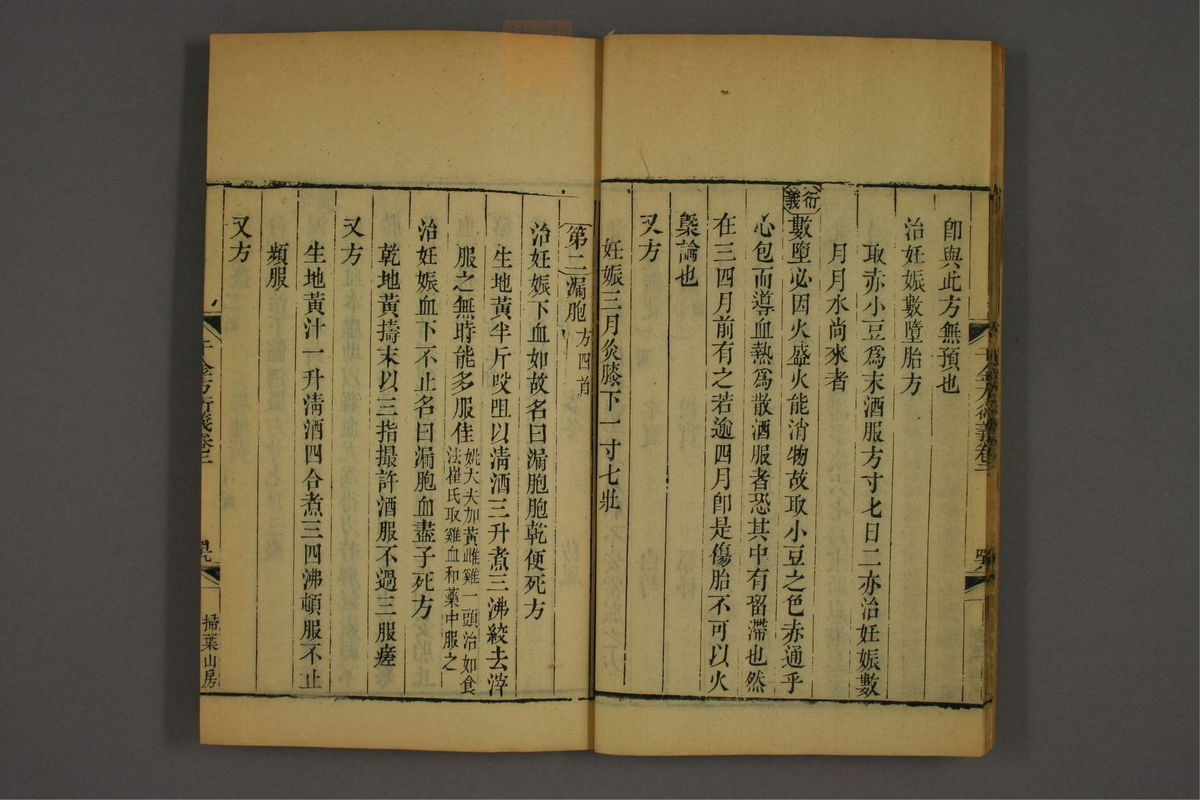 卽與此方無預也
治妊娠數墮胎方
取赤小豆爲末酒服方寸匕日二亦治妊娠數
月月水尚來者
衍義
數墮必因火盛火能消物故取小豆之色赤通乎
心包而導血熱爲散酒服者恐其中有畱滯也然
在三四月前有之若逾四月卽是傷胎不可以火
槩論也
又方
妊娠三月灸膝下一寸七壯
第二漏胞方四首
治妊娠下血如故名曰漏胞胞乾便死方
生地黃半斤㕮咀以淸酒三升煮三沸絞去滓
服之無時能多服佳姚大夫加黃雌雞一頭治如食
法崔氏取雞血和藥中服之
治妊娠血下不止名曰漏胞血盡子死方
乾地黃擣末以三指撮許酒服不過三服瘥
又方
生地黃汁一升淸酒四合煮三四沸頓服不止
頻服
又方
千金方衍義卷二
掃葉山房